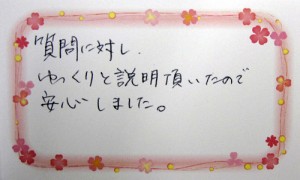 質問に対し、
ゆっくりと説明頂いたので
安心しました。